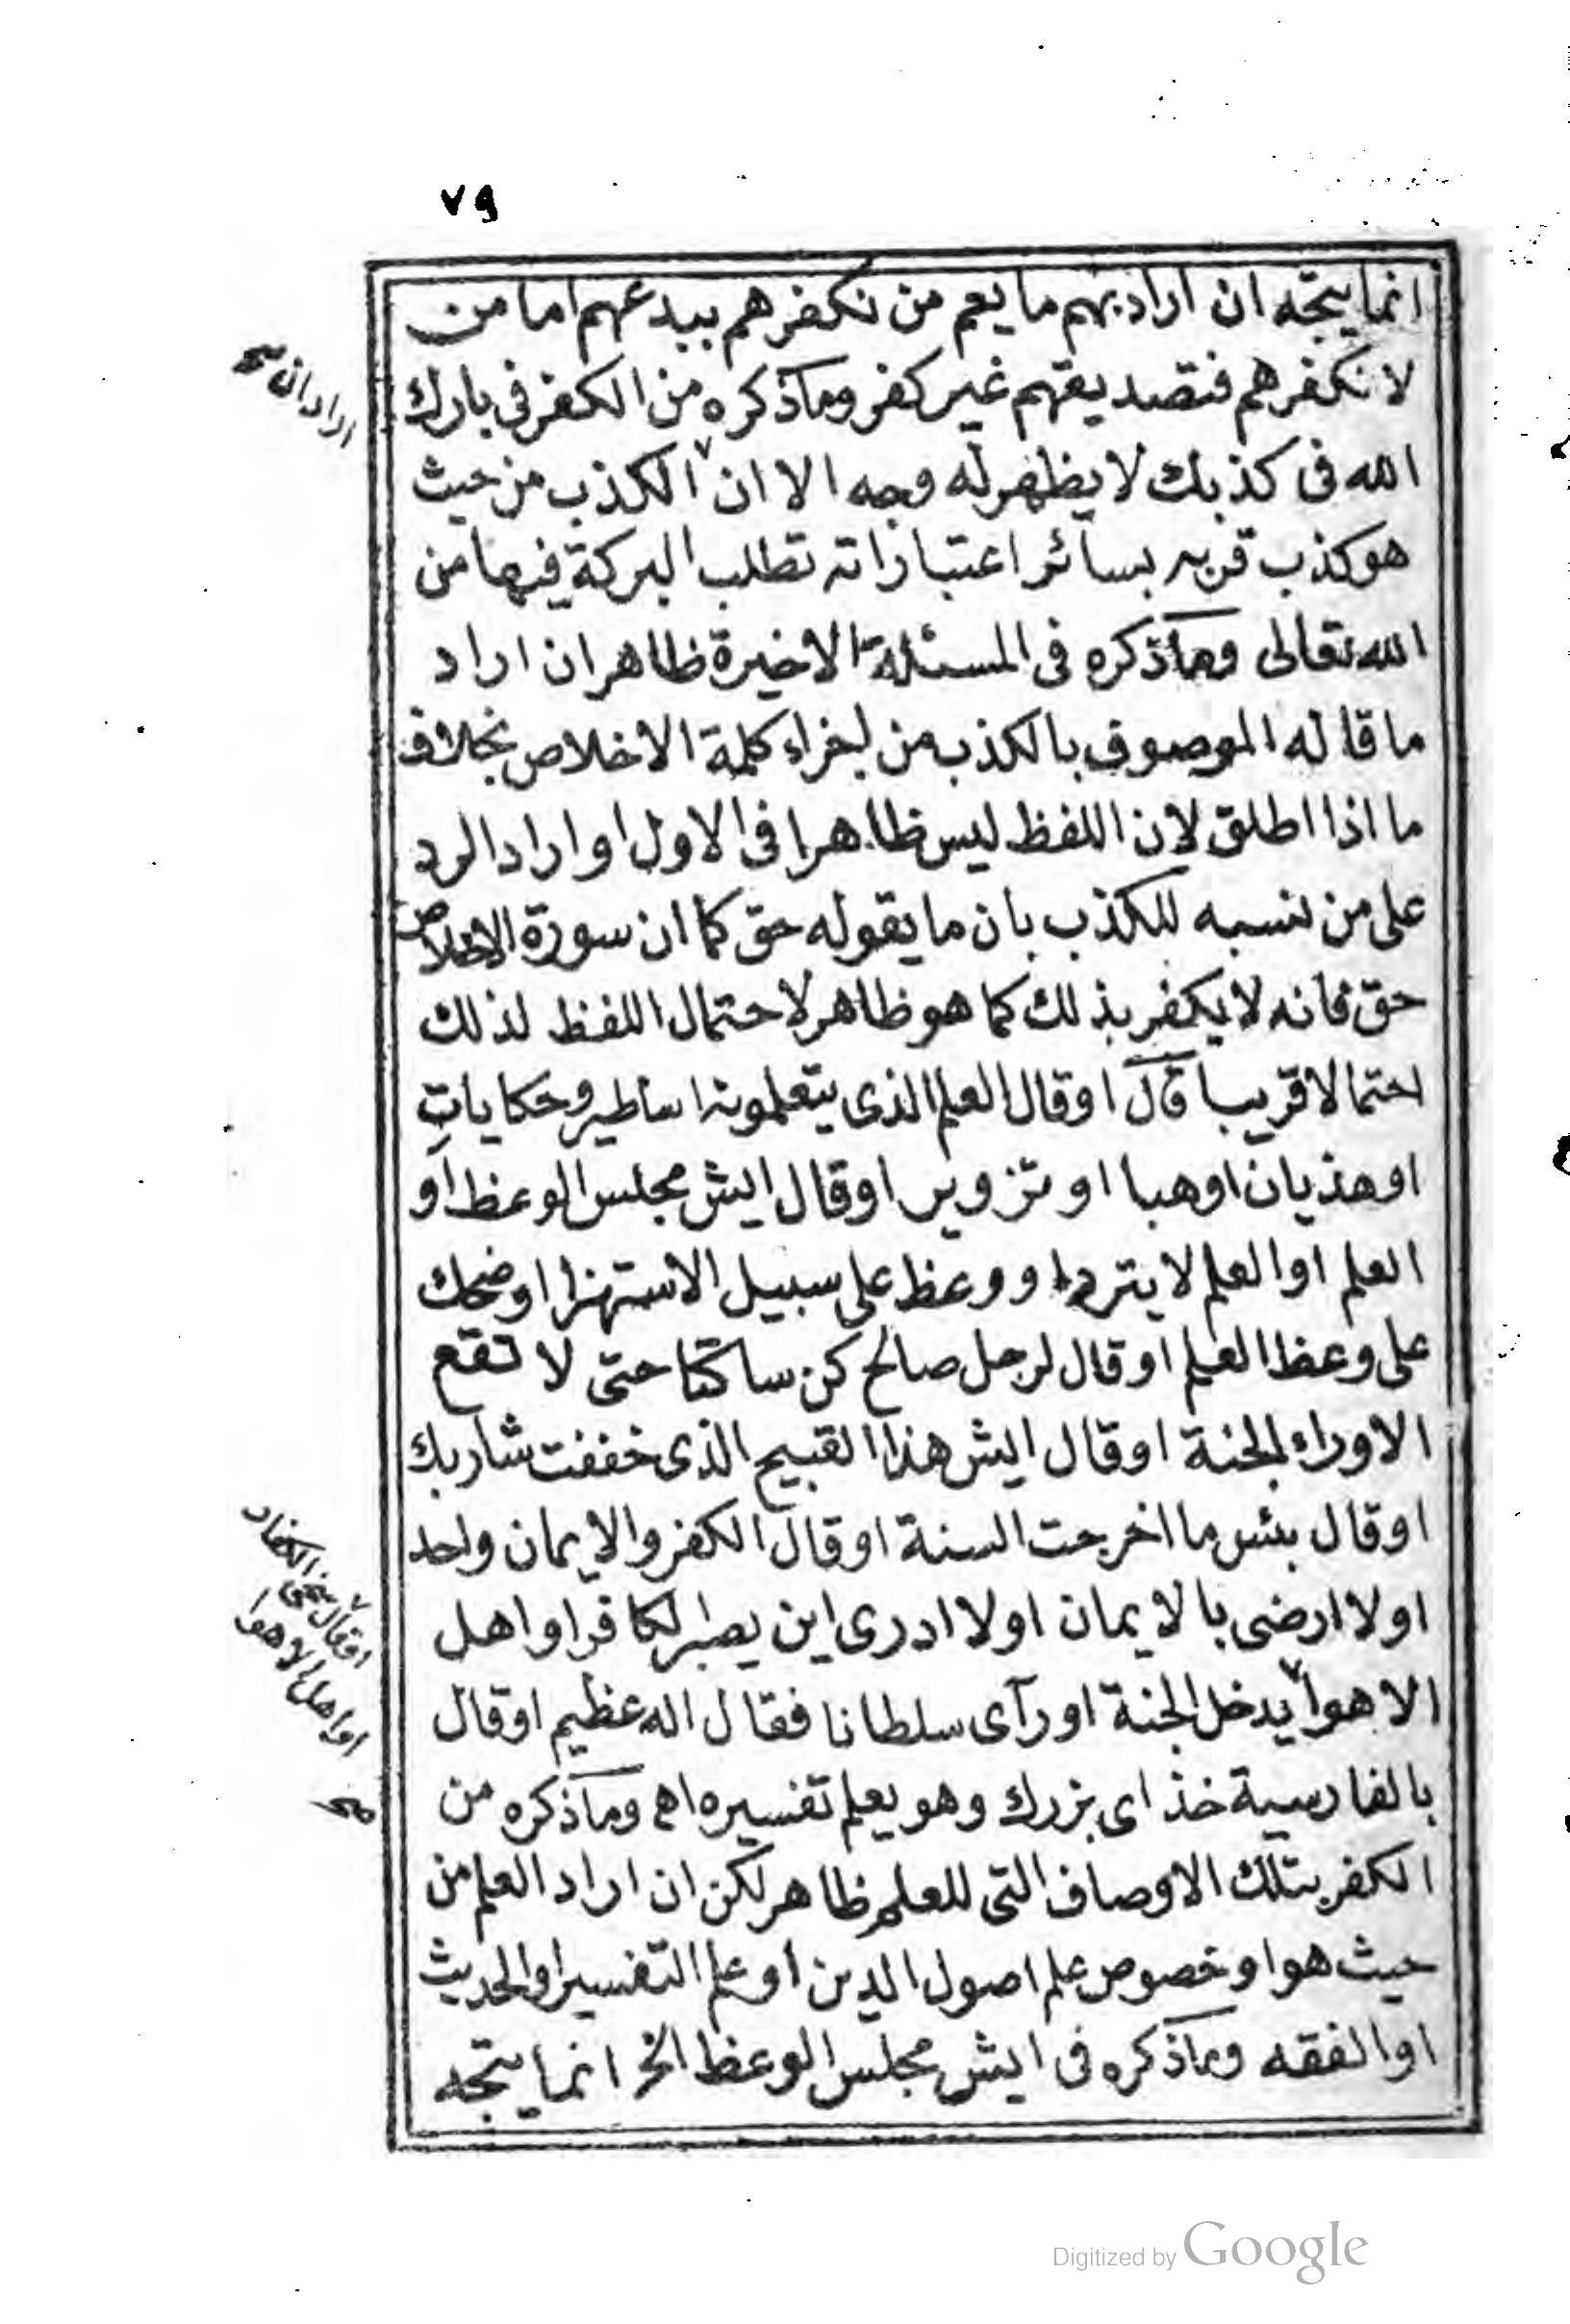 ٧٩
انما يتجه ان اراد بهم ما يعم من نكفرهم ببدعهم اما من
لا نكفرهم فتصديقهم غير كفر وما ذكره من الكفر فى بارك
الله فى كذبك لا يظهر له وجه الا ان الكذب من حيث
هو كذب قربه بسائر اعتباراته تطلب البركة فيها من
الله تعالى وما ذكره فى المسئلة الاخيرة ظاهر ان اراد
ما قاله الموصوف بالكذب من اجزاء كلمة الاخلاص بخلاف
ما اذا اطلق لان اللفظ ليس ظاهرا فى الاول او اراد الرد
على من نسبه للكذب بان ما يقوله حق كما ان سورة الاخلاص
حق فانه لا يكفر بذلك كما هو ظاهر لاحتمال اللفظ لذلك
احتمالا قريبا قال او قال العلم الذى يتعلمونه اساطير وحكايات
او هذيان او هبا او تزوير او قال ايش مجلس الوعظ او
العلم او العلم لا يترد او وعظ على سبيل الاستهزا او ضحك
على وعظ العلم او قال لرجل صالح كن ساكتا حتى لا تقع
الاوراء الجنة او قال ايش هذا القبيح الذى خففت شاربك
او قال بئس ما اخرجت السنة او قال الكفر والايمان واحد
اولا ارضى بالايمان اولا ادرى اين يصير الكافر او اهل
الاهوا يدخل الجنة او رآى سلطانا فقال اله عظيم او قال
بالفارسية خذاى بزرك وهو يعلم تفسيره اهـ وما ذكره من
الكفر بتلك الاوصاف التى للعلم ظاهر لكن ان اراد العلم من
حيث هو او خصوص علم اصول الدين او علم التفسير او الحديث
او الفقه وما ذكره فى ايش مجلس الوعظ الخ انما يتجه
اراد ان صح
او قال الكفار
او اهل الاهوا
صح
Digitized by Google